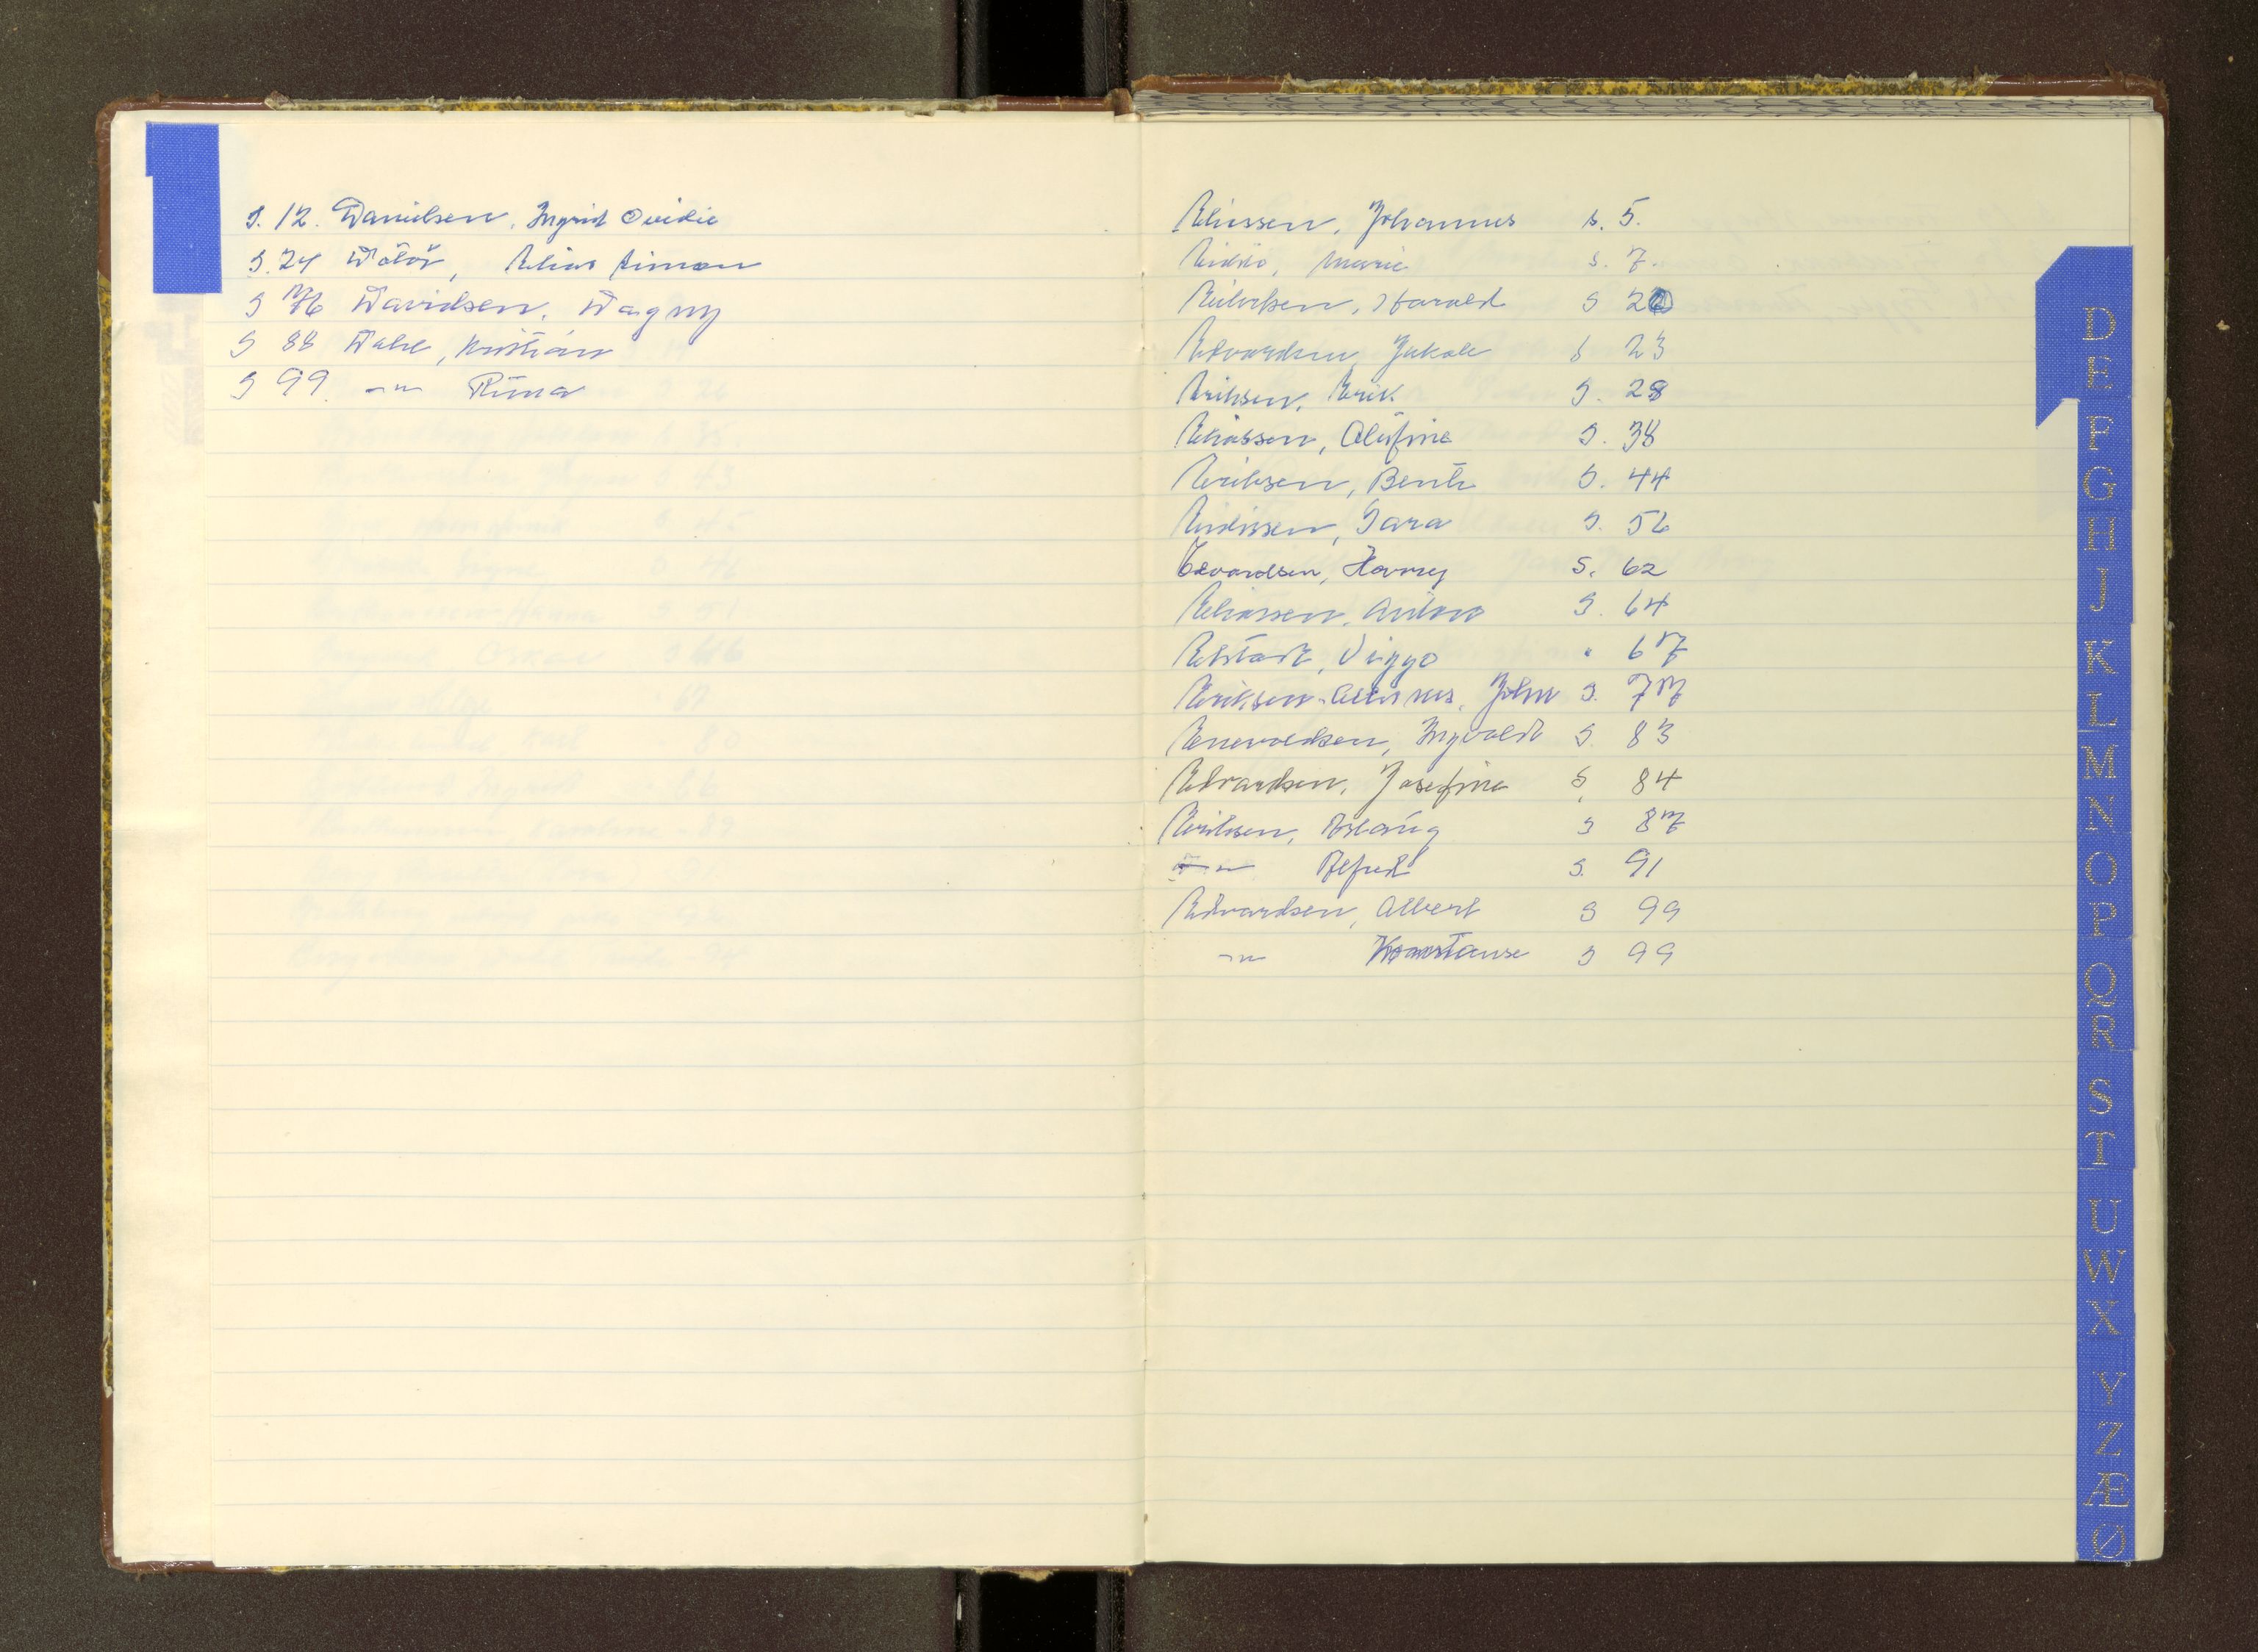 S. 12. Danielsen, Ingrid Ovidie
S. 24 Elias Simon
S 76 Davidsen, Dagny
S 88 Dahl, Kristian
S 99 -"- Rina
Eliassen, Johannes s. 5.
Marie s. 7.
Harald S 20
Edvardsen, Jakob S 23
Eriksen, Erik S. 28
Eliassen, Olufine S. 38
Eriksen, Bent S. 44
Sara S. 56
Edvardsen, Harry S. 62
Eliassen, Anton S. 64
Elstad, Viggo " 67
Eriksen-
John S. 77
Enevoldsen, Ingvald S. 83
Edvardsen, Josefine S. 84
Eriksen, Aslaug S 87
-"- Alfred S. 91
Edvardsen, Albert S 99
-"- Konstanse S 99
D
E
F
G
H
J
K
L
M
N
O
P
Q
R
S
T
U
W
X
Y
Z
Æ
Ø